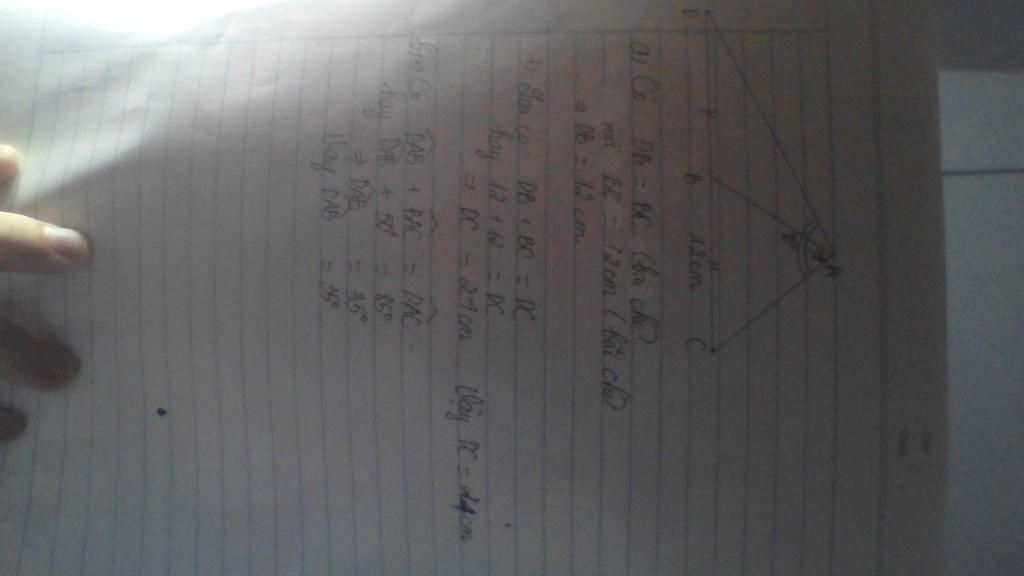 D B 12cm C
A
a) Có DB = BC (bài cho)
mà BC = 12cm (bài cho)
⇒ DB = 12 cm
+) Lại có DB + BC = DC
hay 12 + 12 = DC
⇒ DC = 24 cm Vậy DC = 24 cm
Có DAB + BAC = DAC
hay DAB + 50° = 85°
⇒ DAB = 35°
Vậy DAB = 35°